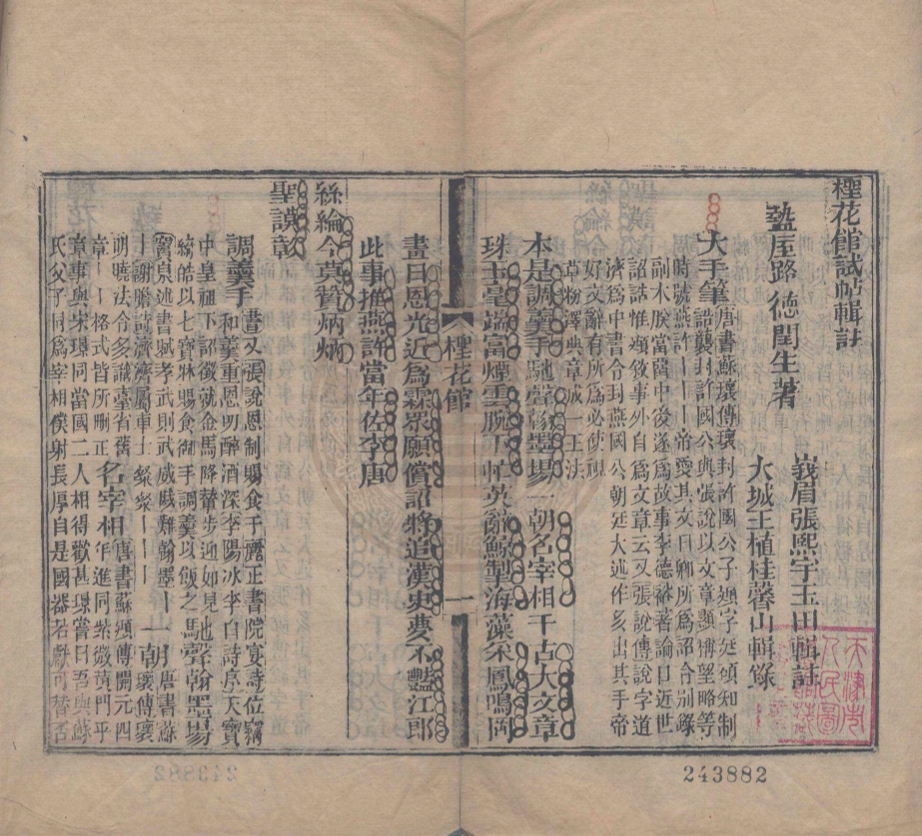 檉花館試帖輯註
盩厔路德閏生著
峩眉張熙宇玉田輯註
大城王植桂馨山輯錄
大手筆唐書蘇瓌傳瓌封許國公子頲字廷碩知制
誥襲封許國公與張說以文章顯博望略等
時號燕許 帝愛其文曰卿所爲詔令別錄
副本朕當 中後遂爲故事李德裕著論曰近世
詔誥惟頲敘事外自爲文章云又張說傳說字道
濟爲中書令封燕國公朝廷大述作多出其手帝
好文辭有所爲必使視
草粉澤典章成一王法
本是調羹手馳聲翰墨場一朝名宰相千古大文章
珠玉毫端富煙雲腕下忙英辭鯨掣海藻采鳳鳴岡
檉花館
一
晝日恩光近爲霖眾願償詔將追漢史夢不豔江郎
此事推燕許當年佐李唐
絲綸今莫贊炳炳
聖謨彰
調羹手和羹重恩明醉酒深李陽冰李白詩序天寶
書又張說恩制賜食于麗正書院宴詩位竊
中皇祖下詔徵就金馬降輦步迎如見
綺皓以七寶牀賜食御手調羹以飯之馳聲翰墨場
竇泉述書賦孝武則武威戚難翰墨
謝瞻詩濟濟屬車士粲粲 一朝唐書蘇
瓌傳瓌
明曉法令多識臺省舊
章 格式皆所刪正名宰相唐書蘇頲傳開元四
年進同紫微黃門平
章事與宋璟同當國二人相得歡甚璟嘗曰吾與蘇
氏父子同爲宰相僕射長厚自是國器若獻可替否
243882